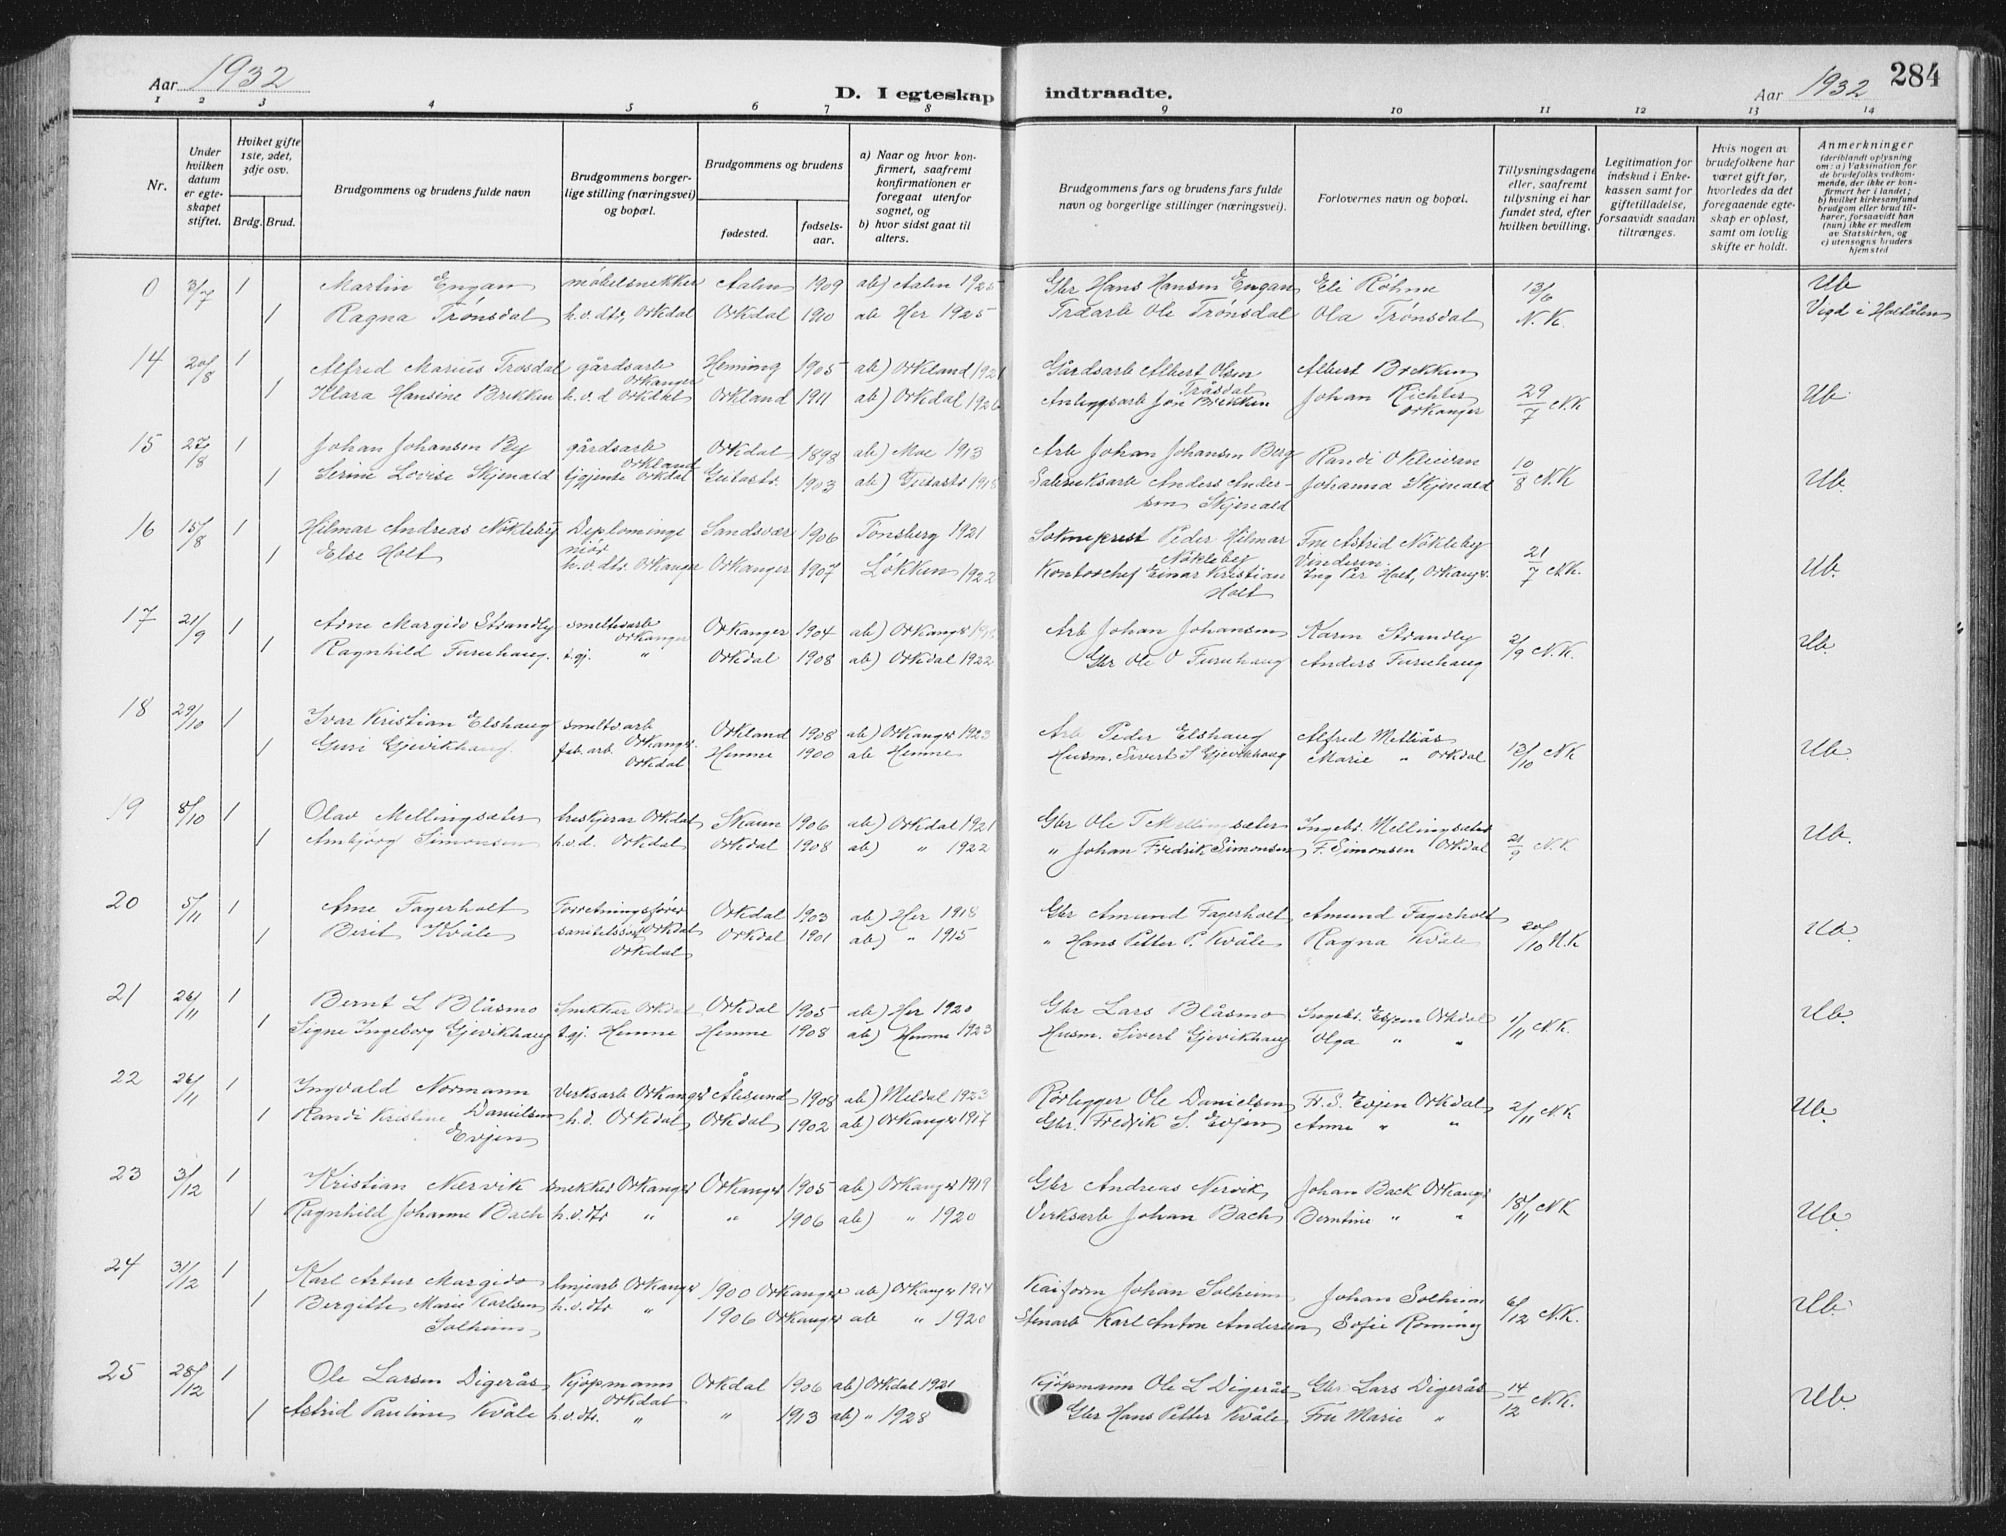 Aar 1932
D. I egteskap indtraadte.
Aar 1932
284
1 2 3 4 5 6 7 8 9 10 11 12 13 14
Nr.
Under hvilken datum er egteskapet stiftet.
Hvilket gifte 1ste, 2det, 3dje osv.
Brdg. Brud.
Brudgommens og brudens fulde navn
Brudgommens borgerlige stilling (næringsvei) og bopæl.
Brudgommens og brudens
fødested.
fødselsaar.
a) Naar og hvor konfirmert, saafremt konfirmationen er foregaat utenfor sognet, og
b) hvor sidst gaat til alters.
Brudgommens fars og brudens fars fulde navn og borgerlige stillinger (næringsvei).
Forlovernes navn og bopæl.
Tillysningsdagene eller, saafremt tillysning ei har fundet sted, efter hvilken bevilling.
Legitimation for indskud i Enkekassen samt for giftetilladelse, forsaavidt saadan tiltrænges.
Hvis nogen av brudefolkene har været gift før, hvorledes da det foregaaende egteskap er opløst, samt om lovlig skifte er holdt.
Anmerkninger (deriblandt oplysning om: a) Vaksination for de brudefolks vedkommende, der ikke er konfirmert her i landet; b) hvilket kirkesamfund brudgom eller brud tilhører, forsaavidt han (hun) ikke er medlem av Statskirken, og c) utensogns bruders hjemsted
0 3/7 1 Martin Engan møbelsnekker Aalen 1909 ab) Aalen 1925 Gbr Hans Hansen Engan Eli Røhme 13/6 Ub
1 Ragna Trønsdal h.v.dtr, Orkdal Orkdal 1910 ab Her 1925 Trdarb Ole Trønsdal Ola Trønsdal N.K. Vigd i Holtålen
14 20/8 1 Alfred Marius Trøsdal gårdsarb Orkanger Heming 1905 ab) Orkland 1921 Gårdsarb Albert Olsen Trøsdal Albert Brekken
1 Klara Hansine Brekken h.v.d Orkdal Orkland 1911 ab) Orkdal 1926 Anleggsarb Jon Brekken Johan Richter Orkanger 29/7 N.K Ub
15 27/8 1 Johan Johansen By gårdsarb Orkland Orkdal 1898 ab) Moe 1913 Arb Johan Johansen Berg Randi O Kleivan 10/8 N.K
1 Serine Lovise Skjenald tjgjente Orkdal Geitastr. 1903 ab) Geitastr 1918 Sabruksarb Anders Andersen Skjenald Johanna Skjenald Ub.
16 15/8 1 Hilmar Andreas Nökleby Diplomingeniør Sandsvær 1906 Tønsberg 1921 Sokneprest Peder Hilmar Nökleby Fru Astrid Nökleby Vinderen.
1 Else Holt h.v.dtr. Orkanger Orkanger 1907 Løkken 1922 Kontorchef Einar Kristian Holt Ing Per Holt, Orkanger. 21/7 N.K. Ub.
17 21/9 1 Arne Margido Strandby smeltvarb Orkanger Orkanger 1904 ab) Orkanger Arb Johan Johansen Karen Strandby 2/9 N.K. Ub.
1 Ragnhild Furuhaug. t.gj. " Orkdal 1908 ab) Orkdal 1922 Gbr Ole O Furuhaug Anders Furuhaug
18 29/10 1 Ivar Kristian Elshaug smeltvarb Orkanger Orkland 1908 ab) Orkanger 1923 Arb Peder Elshaug Alfred Melliås
1 Guri Gjevikhaug. fab.arb. Orkdal Hemne 1900 ab Hemne Husm. Sivert S Gjevikhaug Marie " Orkdal 13/10 N.K Ub
19 8/10 1 Olav Mellingsæter treskjerar Orkdal Skaun 1906 ab) Orkdal 1921 Gbr Ole T Mellingsæter Ingebr. Mellingsæter
1 Ambjörg Simonsen h.v.d. Orkdal Orkdal 1908 ab) " 1922 " Johan Fredrik Simonsen F. Simonsen Orkdal 21/9 N.K Ub.
20 5/11 1 Arne Fagerholt Forretningsfører Orkdal Orkdal 1903 ab) Her 1918 Gbr Amund Fagerholt Amund Fagerholt
1 Berit Kvåle sanitetssøs Orkdal Orkdal 1901 ab) " 1915 " Hans Petter P. Kvåle Ragna Kvåle 20/10 N.K Ub.
21 26/11 1 Bernt L Blåsmo Snekker Orkdal Orkdal 1905 ab) Her 1920 Gbr Lars Blåsmo Ingebr. Evjen Orkdal
1 Signe Ingeborg Gjevikhaug t.gj. Hemne Hemne 1908 ab) Hemne 1923 Husm. Sivert Gjevikhaug Olga " " 1/11 N.K. Ub.
22 26/11 1 Ingvald Normann Danielsen Verksarb Orkanger Ålesund 1908 ab) Meldal 1923 Rørlegger Ole Danielsen Fr. S. Evjen Orkdal
1 Randi Kristine Evjen h.d. Orkdal Orkdal 1902 ab) Orkanger 1917 Gbr. Fredrik S. Evjen Anne " " 2/11 N.K Ub.
23 3/12 1 Kristian Nervik snekker Orkanger Orkanger 1905 ab) Orkanger 1919 Gbr Andreas Nervik Johan Bach Orkanger
1 Ragnhild Johanne Bach h.v.dtr " " 1906 ab) " 1920 Verksarb Johan Bach Berntine " " 18/11 N.K Ub.
24 31/12 1 Karl Artur Margido Solheim linjearb Orkanger 1900 Orkanger ab) Orkanger Kaiform Johan Solheim Johan Solheim
1 Bergitte Marie Karlsen h.v.dtr " 1906 Orkanger ab " 1920 Stenarb Karl Anton Andersen Sofie Rönning 6/12 N.K. Ub.
25 28/12 1 Ole Larsen Digerås Kjøpmann Orkdal Orkdal 1906 ab) Orkdal 1921 Kjøpmann Ole L Digerås Gbr Lars Digerås
1 Astrid Pauline Kvåle h.v.dtr. " " 1913 ab) " 1928 Gbr Hans Petter Kvåle Fru Marie " 14/12 N.K. Ub.